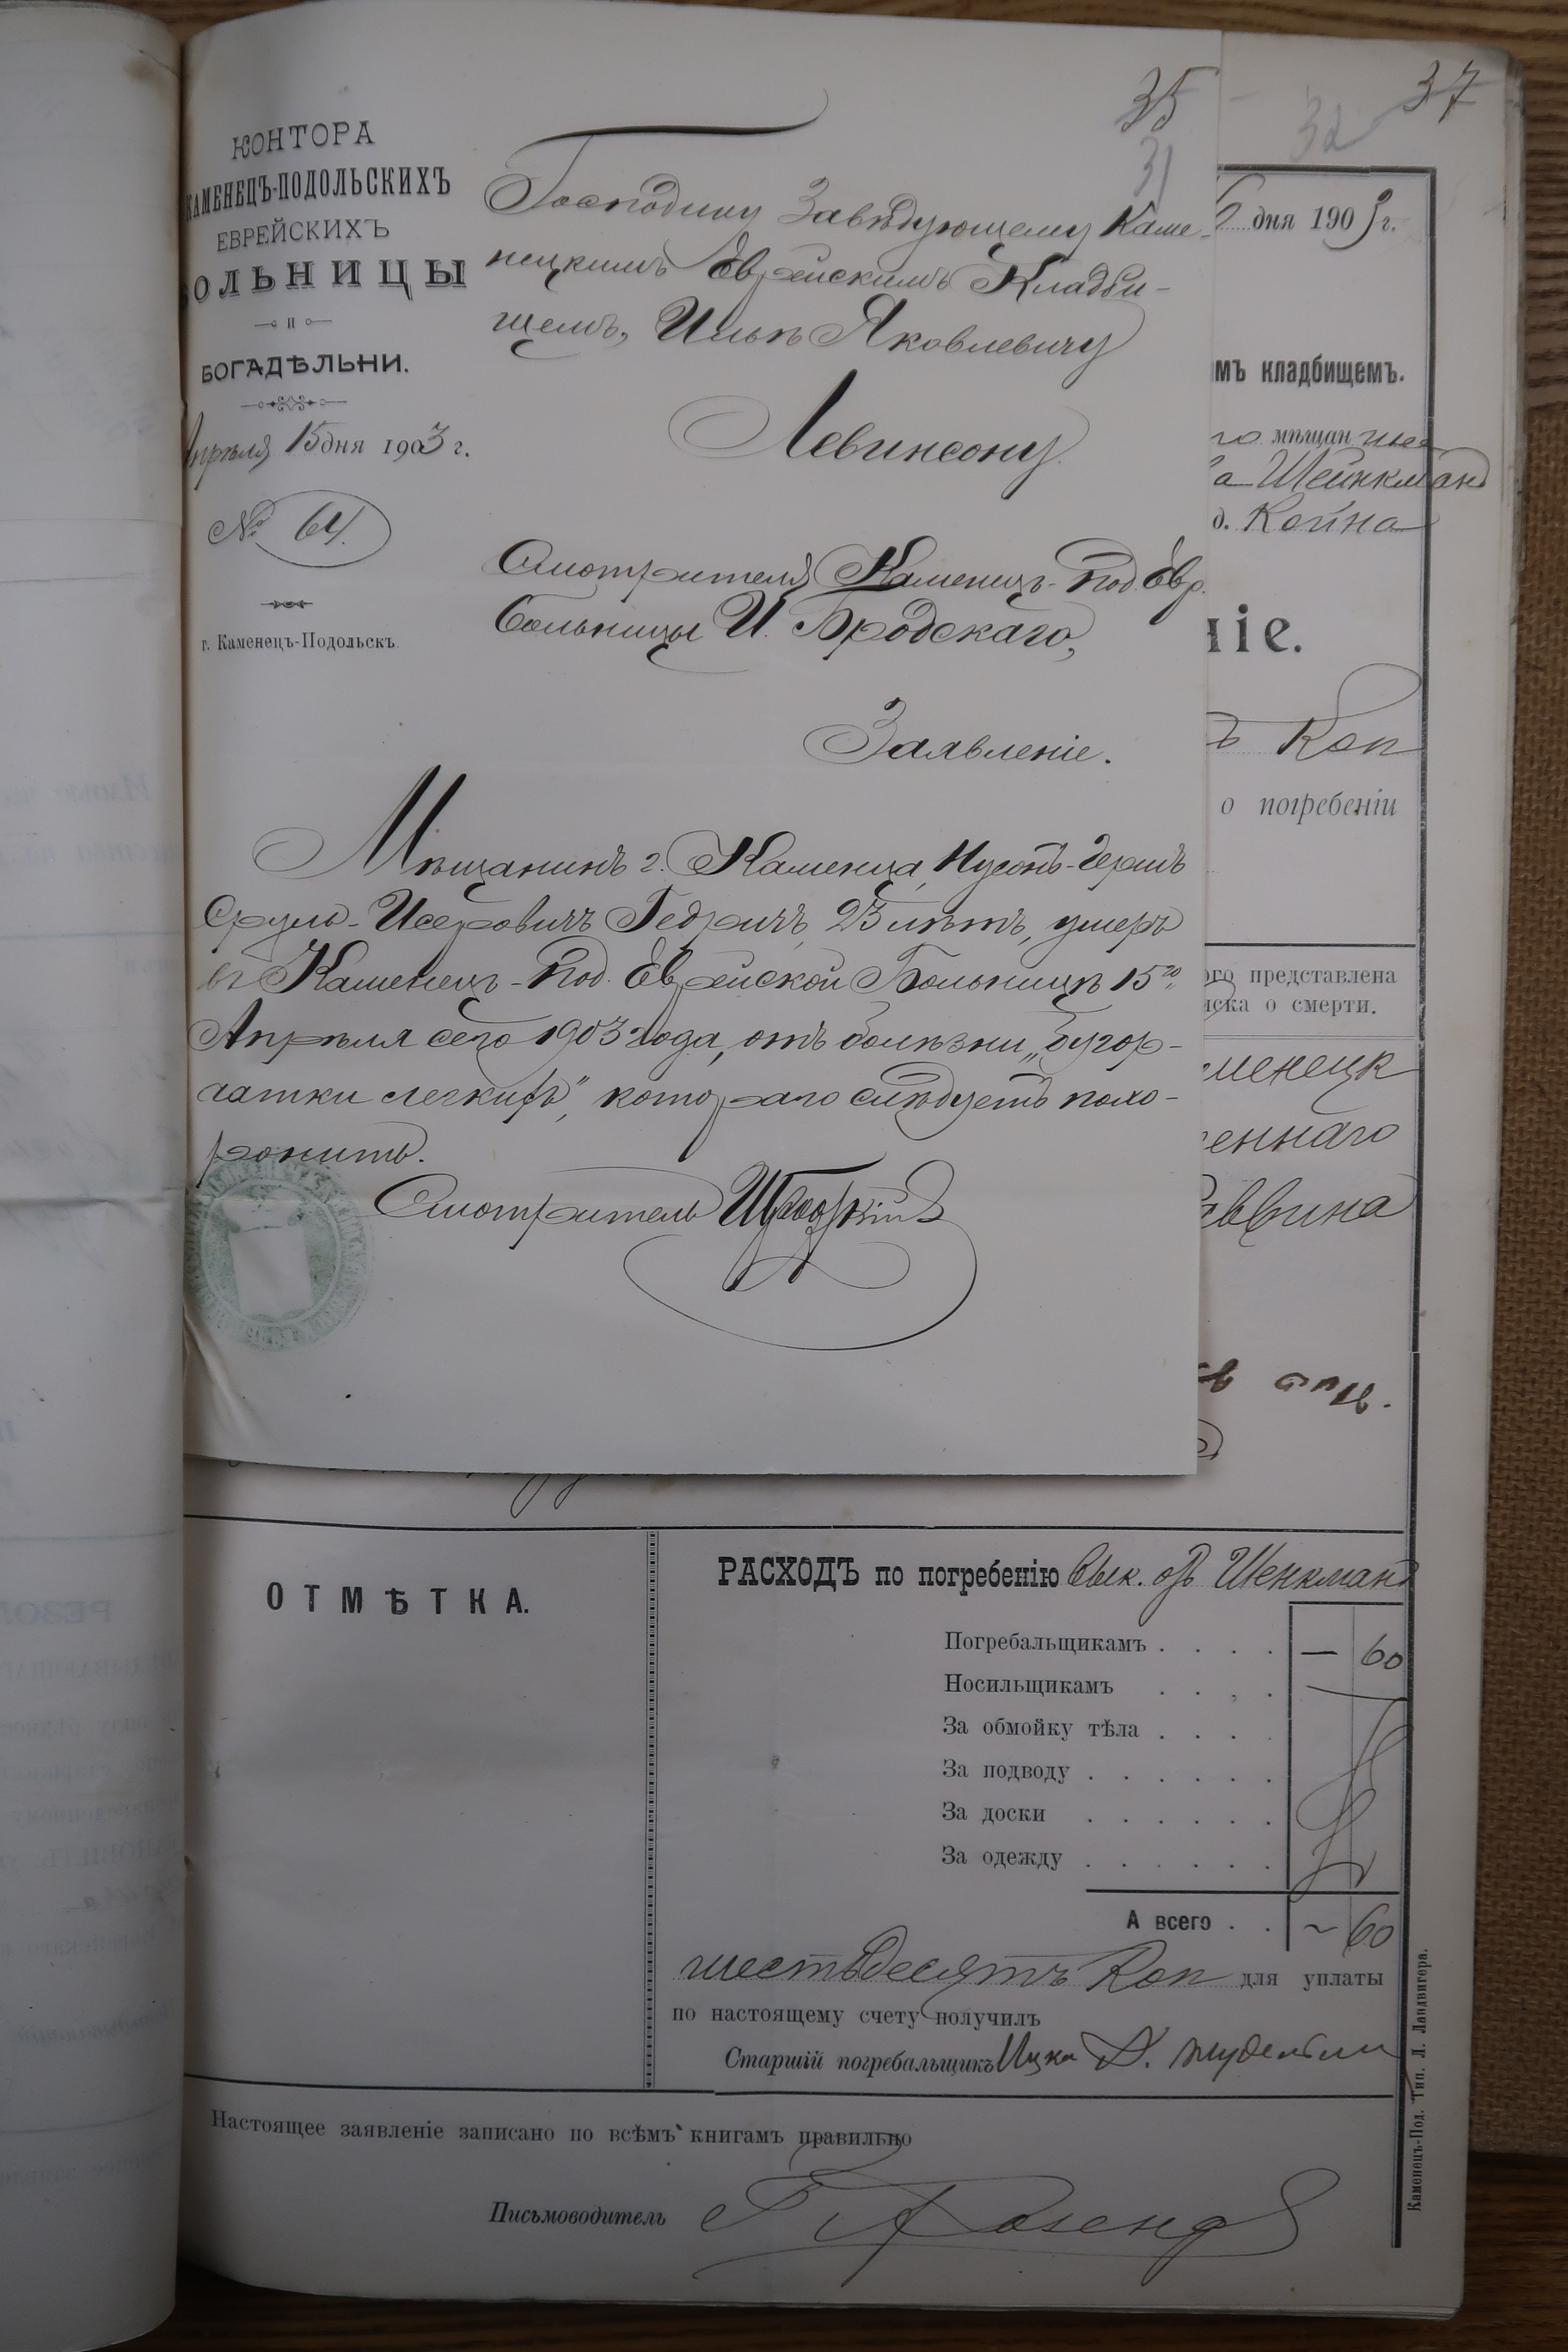 35
31
КОНТОРА
КАМЕНЕЦЪ-ПОДОЛЬСКИХЪ
ЕВРЕЙСКИХЪ
БОЛЬНИЦЫ
и
БОГАДѢЛЬНИ.
Апрѣля 15 дня 1903 г.
№ 64.
г. Каменецъ-Подольскъ.
Господину Завѣдующему Каме-
нецкимъ Еврейскимъ Кладби-
щемъ, Ильѣ Яковлевичу
Левинсону
Смотрителя Каменецъ-Под. Евр.
Больницы И. Бродскаго,
Заявленіе.
Мѣщанинъ г. Каменца, Нусонъ-Гершъ
Сруль-Исеровичъ Гедричъ, 23 лѣтъ, умеръ
въ Каменецъ-Под. Еврейской Больницѣ 15го
Апрѣля сего 1903 года, отъ болѣзни „бугор-
чатки легкихъ", котораго слѣдуетъ похо-
ронить.
Смотритель И Бродскій
37
32
дня 1903 г.
мъ кладбищемъ.
го мѣщан
а Шейнкман
д. Койна
ніе.
ъ Коп
о погребеніи
ого представлена
иска о смерти.
менецк
еннаго
ОТМѢТКА.
РАСХОДЪ по погребенію Вык. отъ Шенкманъ
Погребальщикамъ . . . . — 60
Носильщикамъ . . . .
За обмойку тѣла . . . .
За подводу . . . . . .
За доски . . . . . .
За одежду . . . . . .
А всего . . ~ 60
шестьдесятъ Коп для уплаты
по настоящему счету получилъ
Старшій погребальщикъ Ицко
Настоящее заявленіе записано по всѣмъ книгамъ правильно
Письмоводитель
Каменецъ-Под. Тип. Л. Ландвигера.